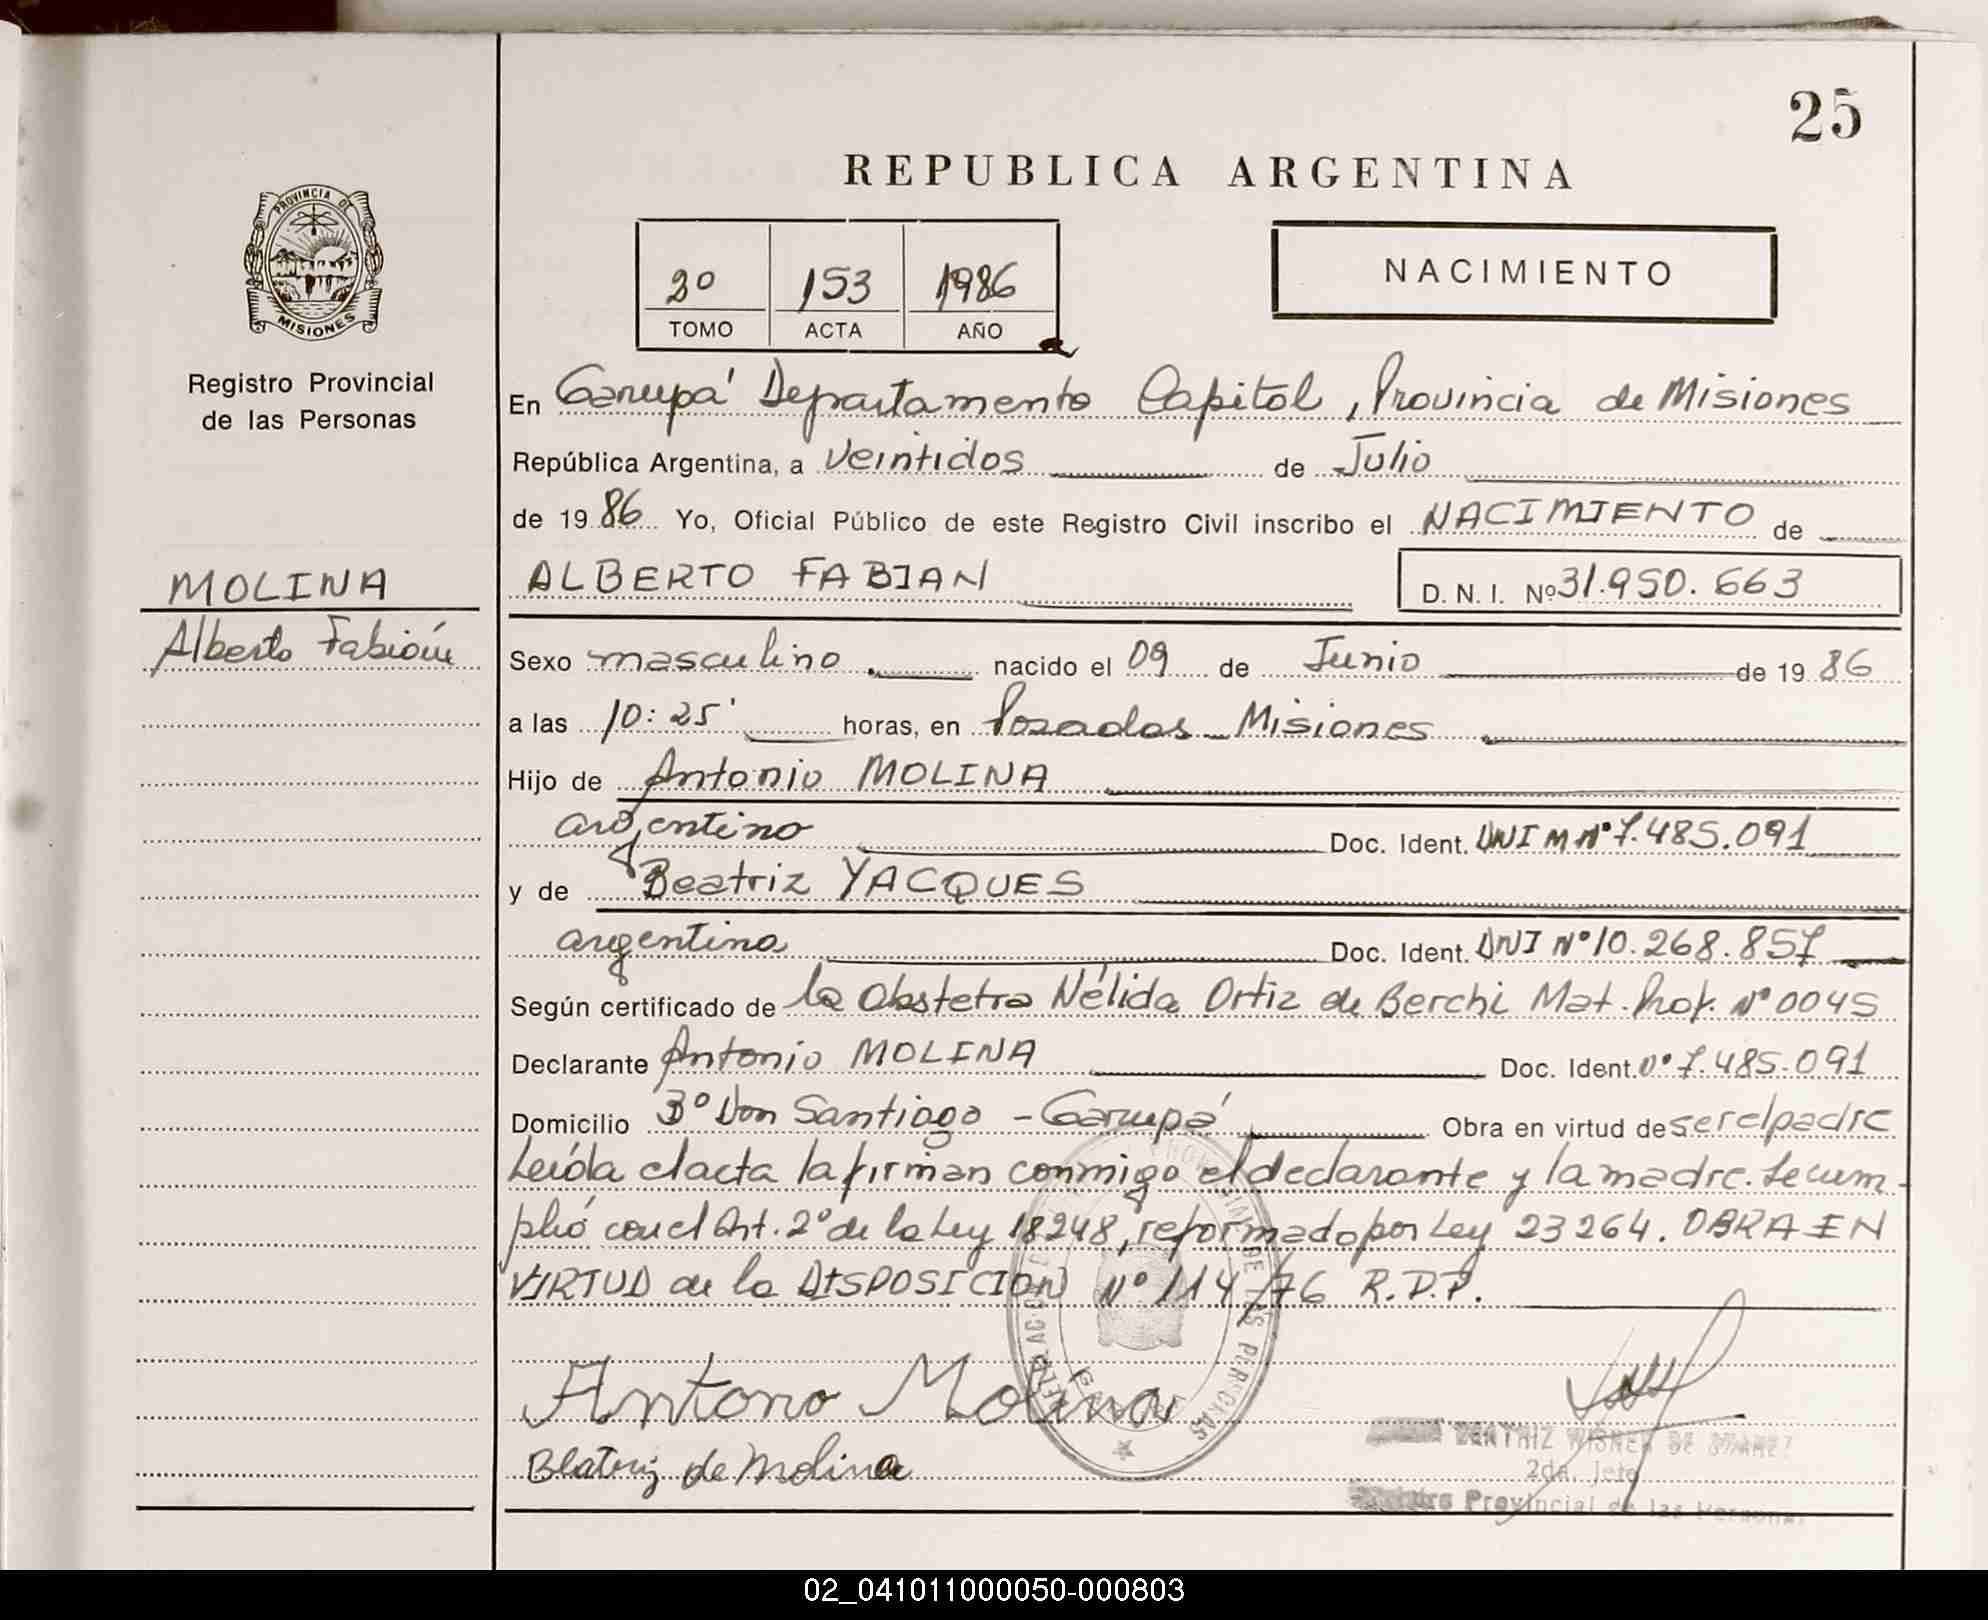 25
REPUBLICA ARGENTINA
PROVINCIA DE
MISIONES
Registro Provincial
de las Personas
MOLINA
Alberto Fabián
153 1986
TOMO ACTA AÑO
NACIMIENTO
En Garupá Departamento Capital, Provincia de Misiones
República Argentina, a veintidos de Julio
de 1986 Yo, Oficial Público de este Registro Civil inscribo el NACIMIENTO de
ALBERTO FABIAN D. N. I. Nº 31.950.663
Sexo masculino. nacido el 09 de Junio de 1986
a las 10:25' horas, en Posadas - Misiones
Hijo de Antonio MOLINA
argentino Doc. Ident. DNI M Nº 7.485.091
y de Beatriz YACQUES
argentina Doc. Ident. DNI Nº 10.268.857
Según certificado de la Obstetra Nélida Ortiz de Berchi Mat. Prof. Nº 0045
Declarante Antonio MOLINA Doc. Ident. Nº 7.485.091
Domicilio Bº Don Santiago - Garupá Obra en virtud de ser el padre
Leída el acta la firman conmigo el declarante y la madre. Se cum-
plió con el Art. 2º de la Ley 18248, reformado por Ley 23264. OBRA EN
VIRTUD de la DISPOSICION Nº 114/76 R.D.P.
Antono Molina
Beatriz de Molina
BEATRIZ WISNER DE SUAREZ
2da. Jefe
Provincial de las Personas
02_041011000050-000803